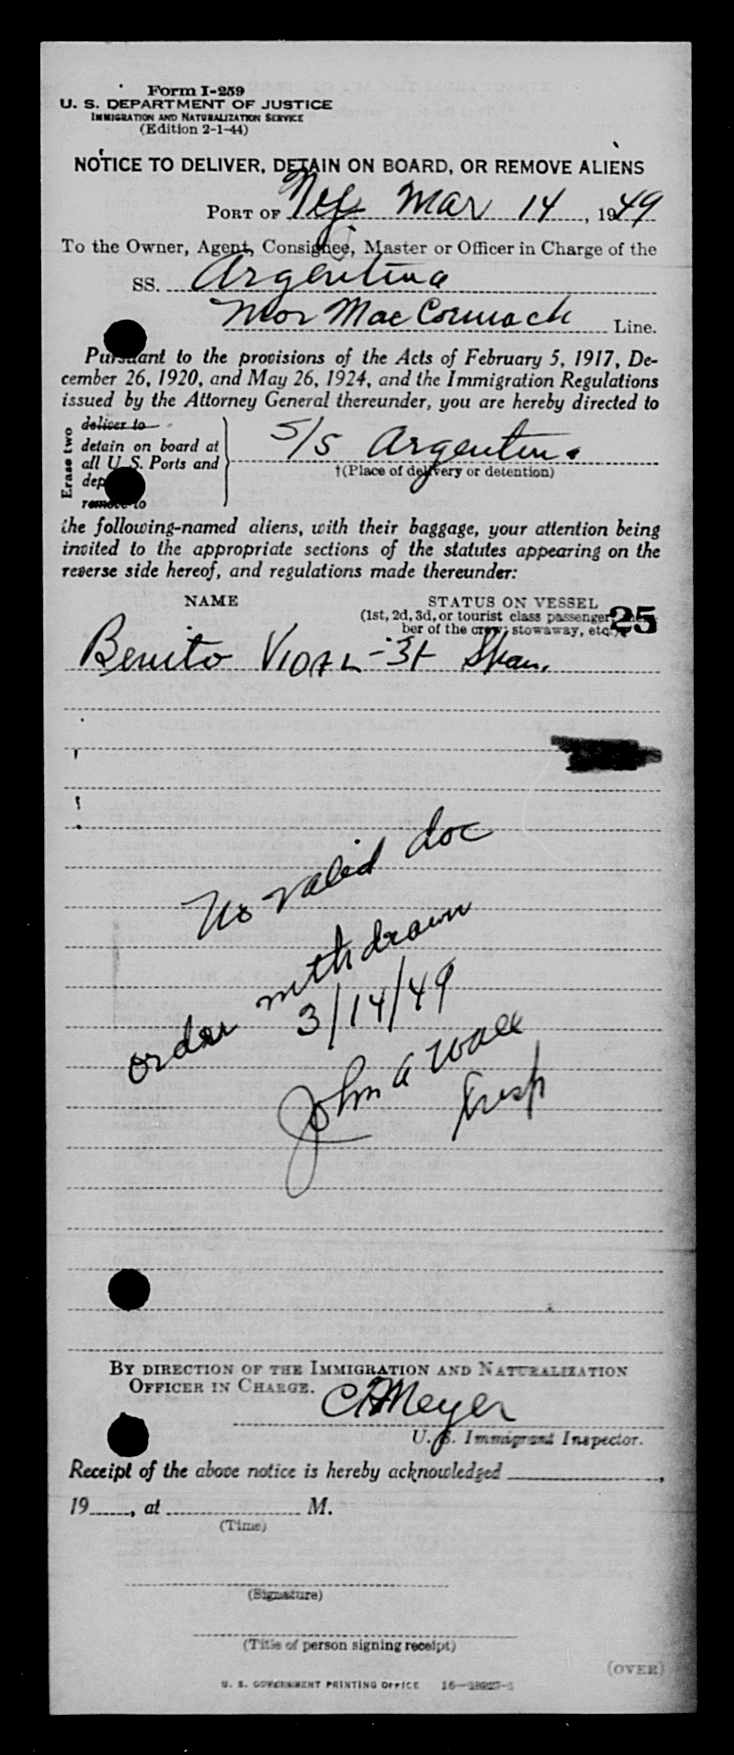 Form I-259
U. S. DEPARTMENT OF JUSTICE
IMMIGRATION AND NATURALIZATION SERVICE
(Edition 2-1-44)
NOTICE TO DELIVER, DETAIN ON BOARD, OR REMOVE ALIENS
PORT OF Mar 14, 1949
To the Owner, Agent, Consignee, Master or Officer in Charge of the
SS. Argentina
Mor Mac Cormack Line.
Pursuant to the provisions of the Acts of February 5, 1917, De-
cember 26, 1920, and May 26, 1924, and the Immigration Regulations
issued by the Attorney General thereunder, you are hereby directed to
Erase two
deliver to
detain on board at
all U. S. Ports and
dep
remove to
S/S Argentina
†(Place of delivery or detention)
the following-named aliens, with their baggage, your attention being
invited to the appropriate sections of the statutes appearing on the
reverse side hereof, and regulations made thereunder:
NAME STATUS ON VESSEL
(1st, 2d, 3d, or tourist class passenger,
ber of the crew; stowaway, etc.)
25
Benito VIDAL - 31 Span.
No valid doc
order withdrawn
3/14/49
John A Wall
Insp
BY DIRECTION OF THE IMMIGRATION AND NATURALIZATION
OFFICER IN CHARGE.
C H Meyer
U. S. Immigrant Inspector.
Receipt of the above notice is hereby acknowledged ,
19 , at M.
(Time)
(Signature)
(Title of person signing receipt)
(OVER)
U. S. GOVERNMENT PRINTING OFFICE